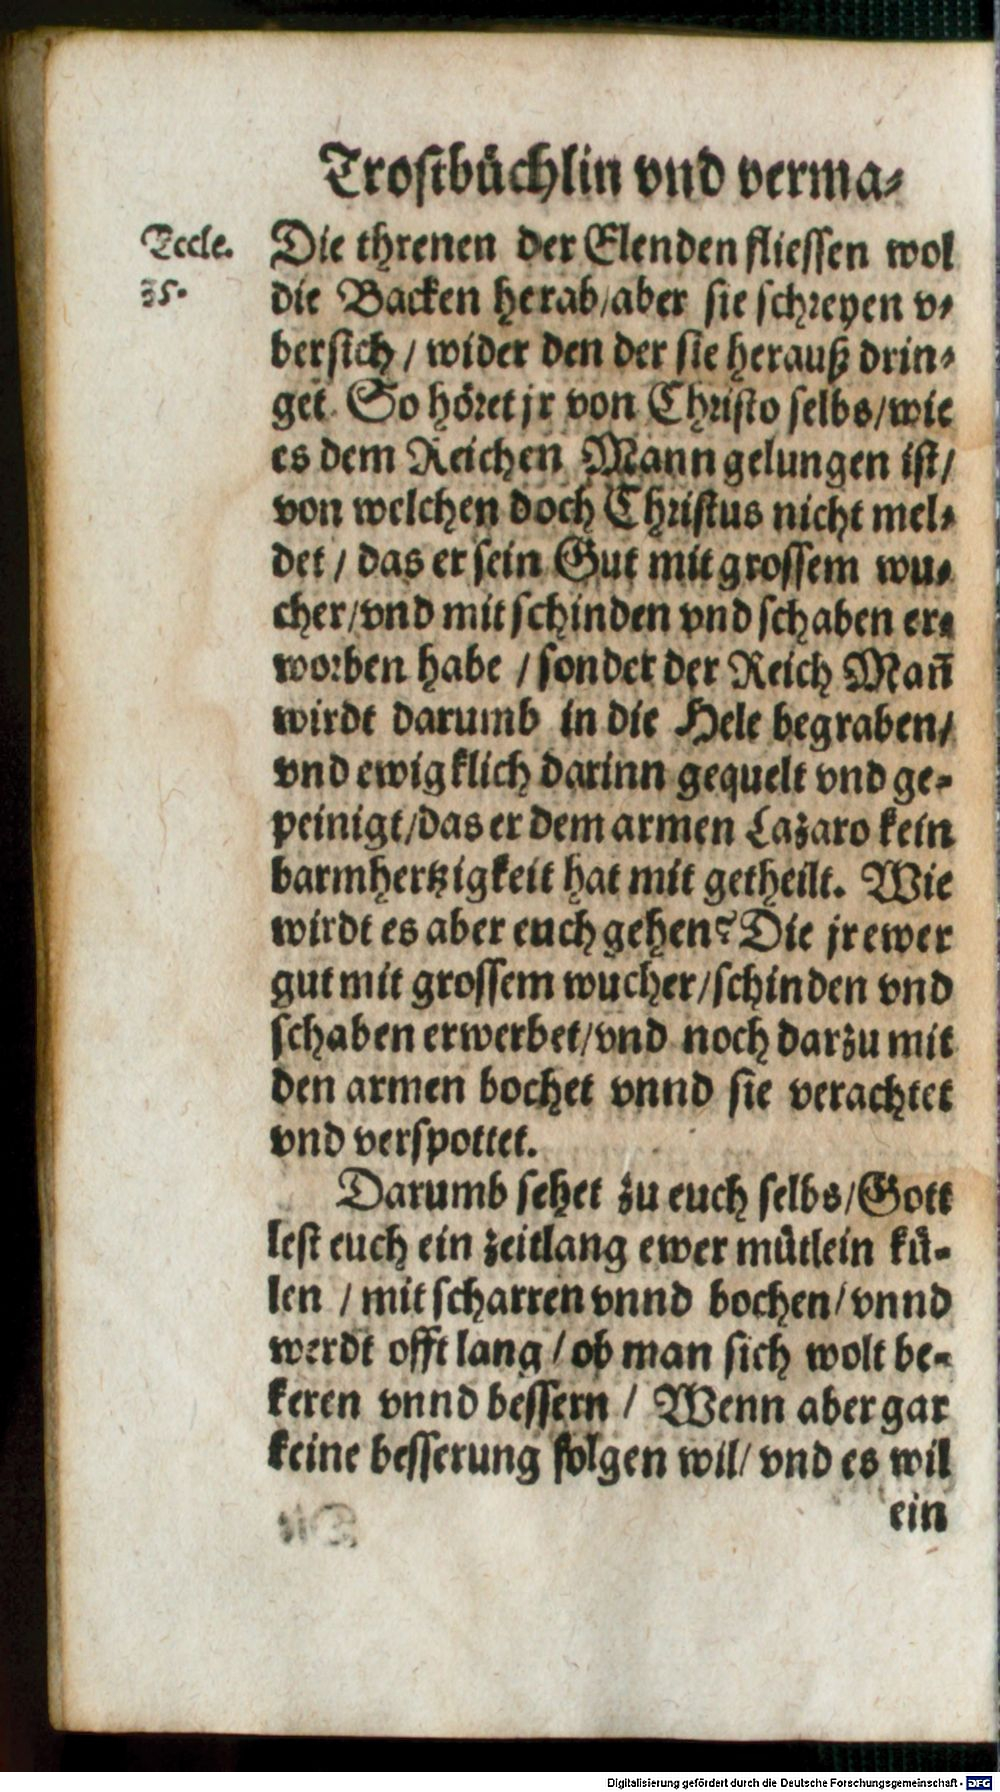 Trostbüchlin vnd verma-
Eccle.
35.
Die threnen der Elenden fliessen wol
die Backen herab/aber sie schreyen v-
bersich/ wider den der sie herauß drin-
get. So höret jr von Christo selbs/wie
es dem Reichen Mann gelungen ist/
von welchen doch Christus nicht mel-
det/ das er sein Gut mit grossem wu-
cher/vnd mit schinden vnd schaben er-
worben habe/ sonder der Reich Mañ
wirdt darumb in die Hele begraben/
vnd ewigklich darinn gequelt vnd ge-
peinigt/das er dem armen Lazaro kein
barmhertzigkeit hat mit getheilt. Wie
wirdt es aber euch gehen? Die jr ewer
gut mit grossem wucher/schinden vnd
schaben erwerbet/vnd noch darzu mit
den armen bochet vnnd sie verachtet
vnd verspottet.
Darumb sehet zu euch selbs/Gott
lest euch ein zeitlang ewer mütlein kü-
len/ mit scharren vnnd bochen/vnnd
werdt offt lang/ob man sich wolt be-
keren vnnd bessern/ Wenn aber gar
keine besserung folgen wil/ vnd es wil
ein
Digitalisierung gefördert durch die Deutsche Forschungsgemeinschaft - DFG